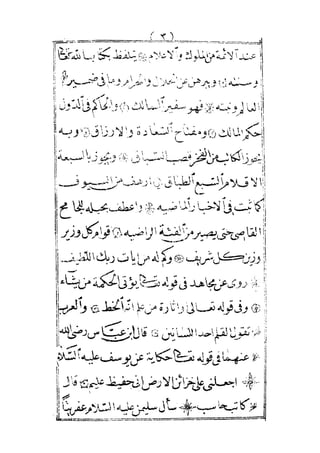 (٣)
عند الائمة من الملوك والاعلام يتلفظ بكتاب الله تعالى
وسنته ويبرهن عن الحلال والحرام وما في ضمير
العالم ونبته فهو سفير الممالك والحاكم في الدول
حكم المالك ومفتاح السعادة والارزاق وبه
يحوز الكاتب من الفخر قصب السباق ويجوز بالسبعة
الاقلام السبع الطباق ارهف من السيوف
كما ثبت في الاخبار الماضيه واعطف بحيله للجامح
القاصي حتى يصير من الفئة الراضيه قوام كل وزير
وزين كل شريف وكم له من ايات ربك اللطيف
روى عن مجاهد في قوله تعالى يؤتي الحكمة من يشاء
وفي قوله تعالى او اثارة من علم انه الخط والعرب
تقول القلم احد اللسانين قال ابن عباس رضي الله
عنهما في قوله تعالى حكاية عن يوسف عليه السلام
اجعلني على خزائن الارض اني حفيظ عليم قال
كاتب حاسب سأل سليمن عليه السلام عفريتا